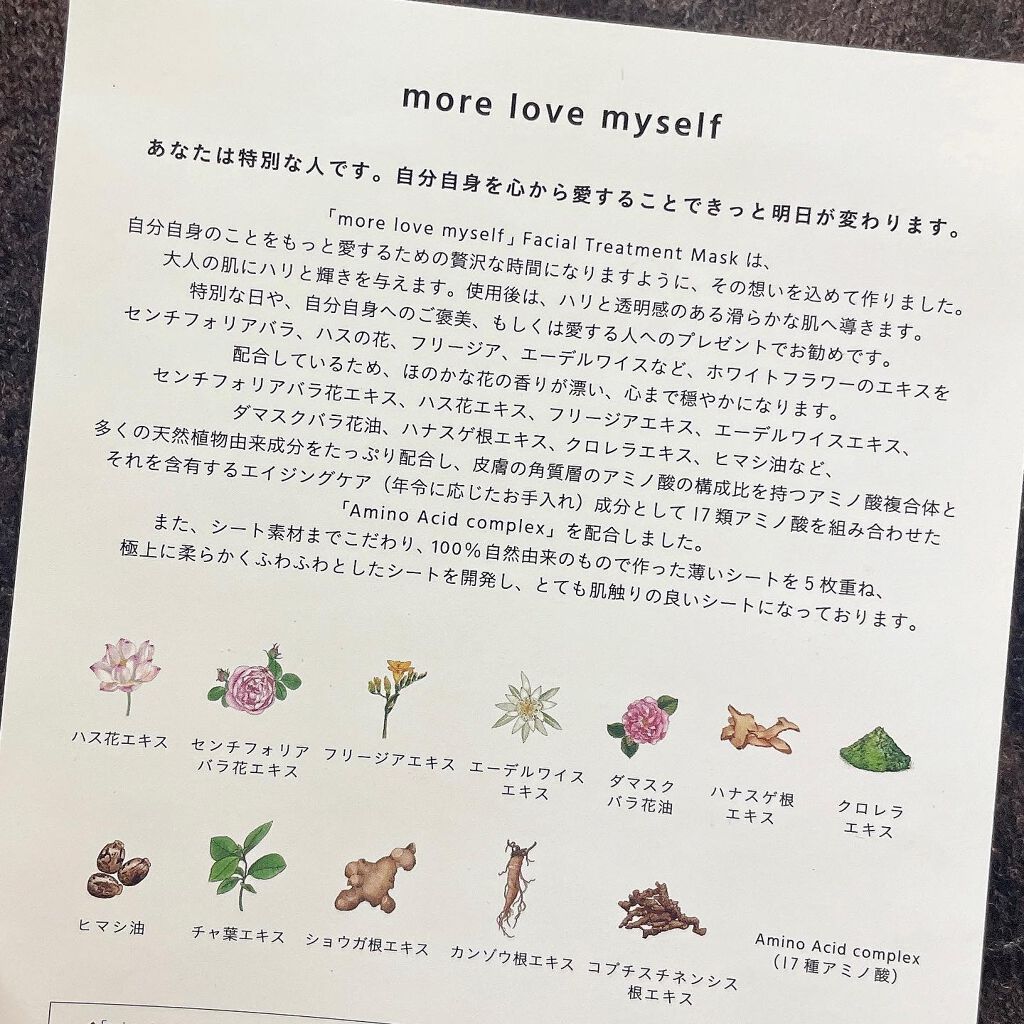 more love myself
あなたは特別な人です。自分自身を心から愛することできっと明日が変わります。
「more love myself」Facial Treatment Mask は、
自分自身のことをもっと愛するための贅沢な時間になりますように、その想いを込めて作りました。
大人の肌にハリと輝きを与えます。使用後は、ハリと透明感のある滑らかな肌へ導きます。
特別な日や、自分自身へのご褒美、もしくは愛する人へのプレゼントでお勧めです。
センチフォリアバラ、ハスの花、フリージア、エーデルワイスなど、ホワイトフラワーのエキスを
配合しているため、ほのかな花の香りが漂い、心まで穏やかになります。
センチフォリアバラ花エキス、ハス花エキス、フリージアエキス、エーデルワイスエキス、
ダマスクバラ花油、ハナスゲ根エキス、クロレラエキス、ヒマシ油など、
多くの天然植物由来成分をたっぷり配合し、皮膚の角質層のアミノ酸の構成比を持つアミノ酸複合体と
それを含有するエイジングケア（年令に応じたお手入れ）成分として17類アミノ酸を組み合わせた
「Amino Acid complex」を配合しました。
また、シート素材までこだわり、100%自然由来のもので作った薄いシートを5枚重ね、
極上に柔らかくふわふわとしたシートを開発し、とても肌触りの良いシートになっております。
ハス花エキス
センチフォリア
バラ花エキス
フリージアエキス
エーデルワイス
エキス
ダマスク
バラ花油
ハナスゲ根
エキス
クロレラ
エキス
ヒマシ油
チャ葉エキス
ショウガ根エキス
カンゾウ根エキス
コプチスチネンシス
根エキス
Amino Acid complex
（17種アミノ酸）